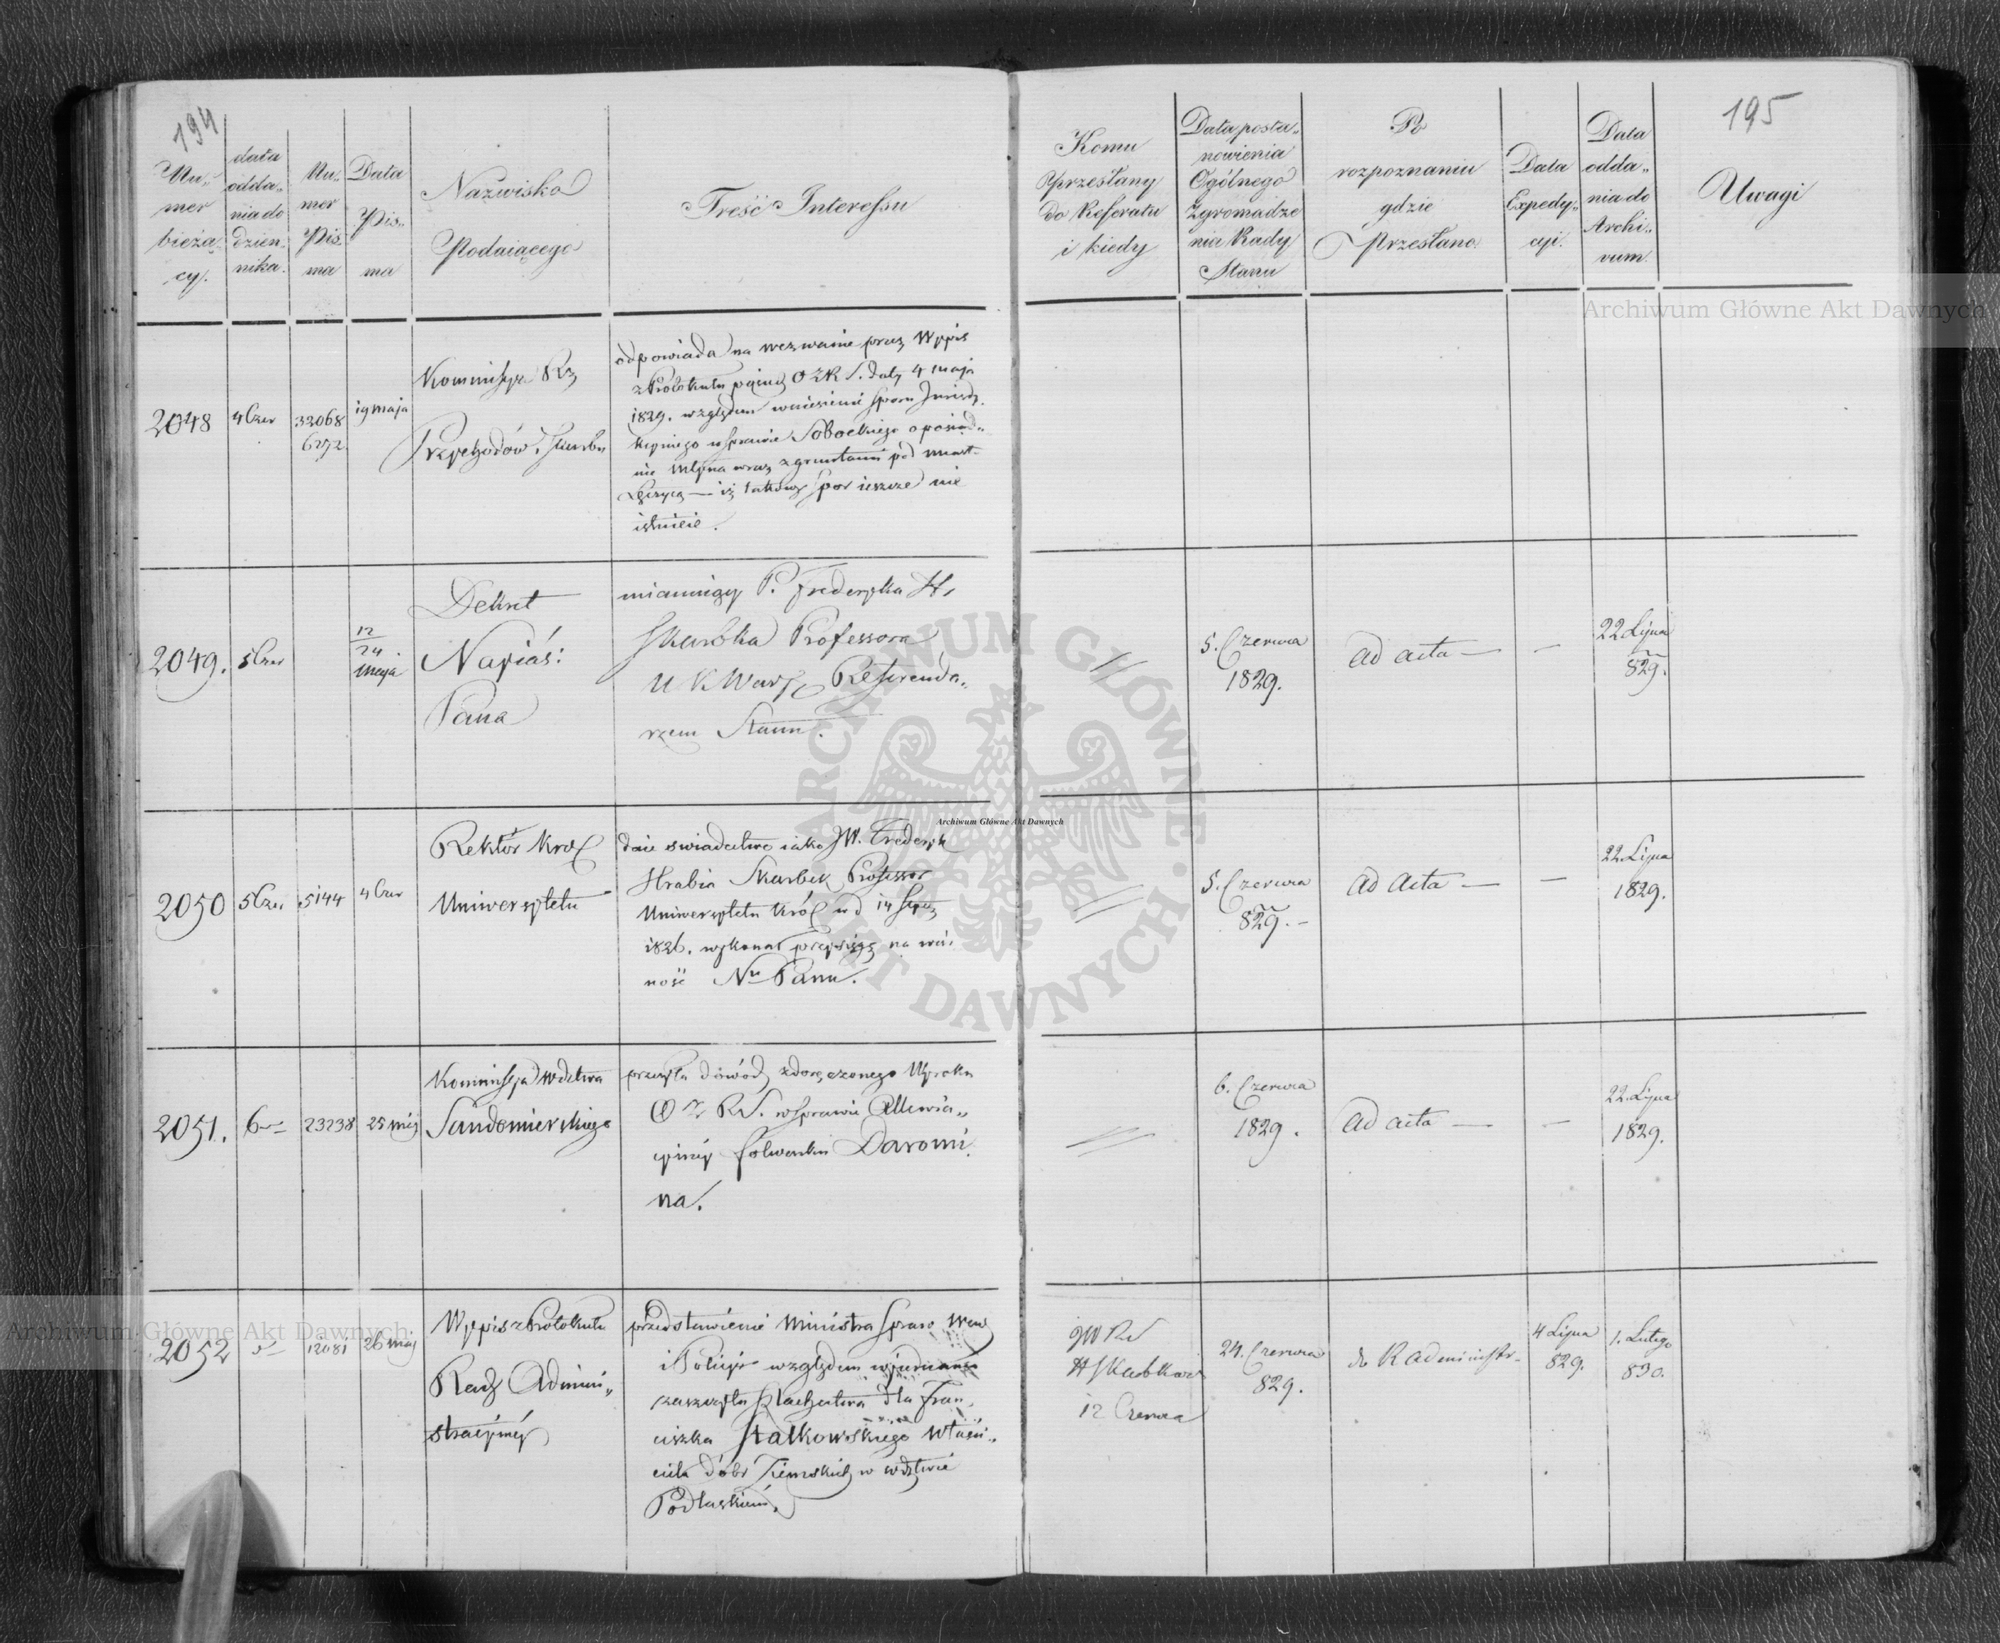 194
Nu-
mer
bieżą-
cy.
data
odda-
nia do
dzien-
nika.
Nu-
mer
Pis
ma
Data
Pis-
ma
Nazwisko
Podaiącego
Treść Interessu
Komu
Przesłany
do Referatu
i kiedy
Data posta-
nowienia
Ogólnego
Zgromadze
nia Rady
Stanu
Po
rozpoznaniu
gdzie
Przesłano
Data
Expedy-
cyi.
Data
odda-
nia do
Archi-
vum
195
Uwagi
2048
4 Czer
32068
6272.
19 maja
Kommissya Rz
Przychodów i Skarbu
odpowiada na wezwanie przez Wypis
z Protokułu O Z R S. daty 4 maja
1829. względem wniesienia Sporu
w sprawie Sobockiego o
nie młyna wraz z gruntami pod miast.
Łęczycą — iż takowy spor ieszcze nie
istnieie.
2049.
5 Czer
12
24
maja
Dekret
Nayiaś:
Pana
mianuiący P. Frederyka H.
Skarbka Professora
U K Warsz Referenda-
rzem Stanu.
5. Czerwca
1829.
ad acta —
—
22 Lipca
829.
2050
5 Cze.
5144
4 Czer
Rektor Król
Uniwersytetu
daie świadectwo iako JW. Frederyk
Hrabia Skarbek Professor
Uniwersytetu Król w d 14
1826. wykonał przysięgę na wier
ność Nu Panu.
5. Czerwca
829. -
ad acta —
—
22 Lipca
1829.
2051.
6
23238
25 maj
Kommissya Wdztwa
Sandomierskiego
przesyła dowód z doręczonego Wyroku
O Z R S. w sprawie
folwarku Daromi
na.
6. Czerwca
1829.
ad acta —
—
22 Lipca
1829.
2052
12081
26 maj
Wypis z Protokułu
Rady Admini-
stracyiney
przedstawienie Ministra Spraw Wew
i Policyi względem wyiednania
zaszczytu Szlachectwa dla Fran-
ciszka Stalkowskiego Właści-
ciela dóbr Ziemskich w wdztwie
Podlaskiem.
JW RS
H Skarbkowi
12 Czerwca
24. Czerwca
829.
do R Administr-
4 Lipca
829.
1. Lutego
830.
Archiwum Główne Akt Dawnych
Archiwum Główne Akt Dawnych
Archiwum Główne Akt Dawnych
ARCHIWUM GŁÓWNE AKT DAWNYCH